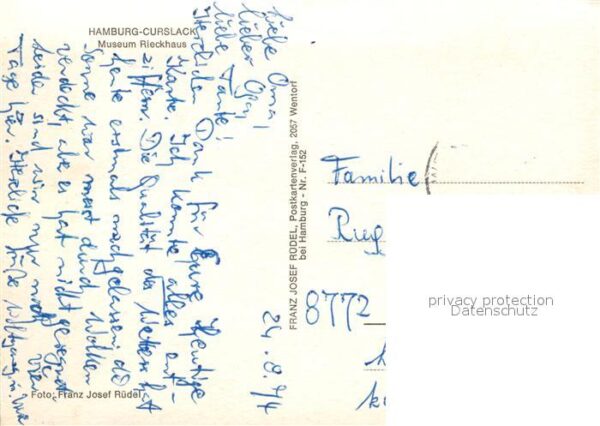 HAMBURG-CURSLACK
Museum Rieckhaus
24.8.74
Liebe Oma,
lieber Opa,
liebe Tante!
Herzlichen Dank für Eure heutige
Karte. Ich konnte alles ent-
ziffern. Die Qualität des Wetters hat
heute erstmals nachgelassen: die
Sonne war meist durch Wolken
verdeckt, aber es hat nicht geregnet.
Leider sind wir nur noch vier
Tage hier. Herzliche Grüße
Foto: Franz Josef Rüdel
FRANZ JOSEF RÜDEL, Postkartenverlag, 2057 Wentorf
bei Hamburg - Nr. F-152
Familie
Rug
8772
privacy protection
Datenschutz